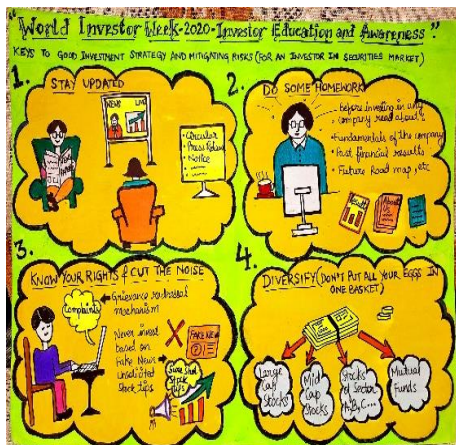 "World Investor Week-2020-Investor Education and Awareness"
KEYS TO GOOD INVESTMENT STRATEGY AND MITIGATING RISKS (FOR AN INVESTOR IN SECURITIES MARKET)
1.
STAY UPDATED
NEWS LIVE
• Circular
• Press Release
• Notice
2.
DO SOME HOMEWORK
before investing in any
company read about:
• Fundamentals of the company
• Past financial results
• Future Road map, etc
Results
3.
KNOW YOUR RIGHTS & CUT THE NOISE
Complaints
Grievance redressal
mechanism
Never invest
based on
Fake News
unsolicited
stock tips
FAKE NEWS
Sure Shot
Stock
tips
4.
DIVERSIFY (DON'T PUT ALL YOUR EGGS IN
ONE BASKET)
Large
Cap
Stocks
Mid
Cap
Stocks
Stocks
of Sector
A,B,C...
Mutual
Funds